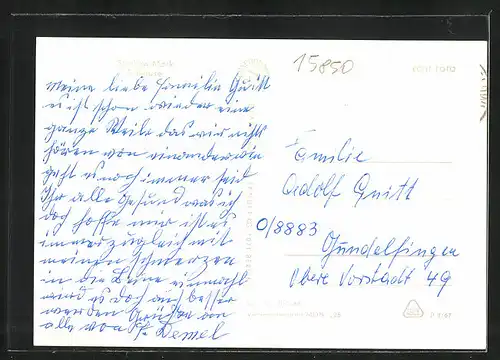 15850
meine liebe Familie Quitt
nu ist schon wieder eine
ganze Weile das wir nichts
hören von einander wie
geht es noch immer seid
Ihr alle Gesund was ich
doch hoffe mir ist es
immer zugleich mit
meinen Schmerzen
in die Beine einmahl
wird es doch auch besser
werden Grüsse an
alle von Demel
Familie
Adolf Quitt
O/8883
Gundelfingen
Obere Vorstadt 49